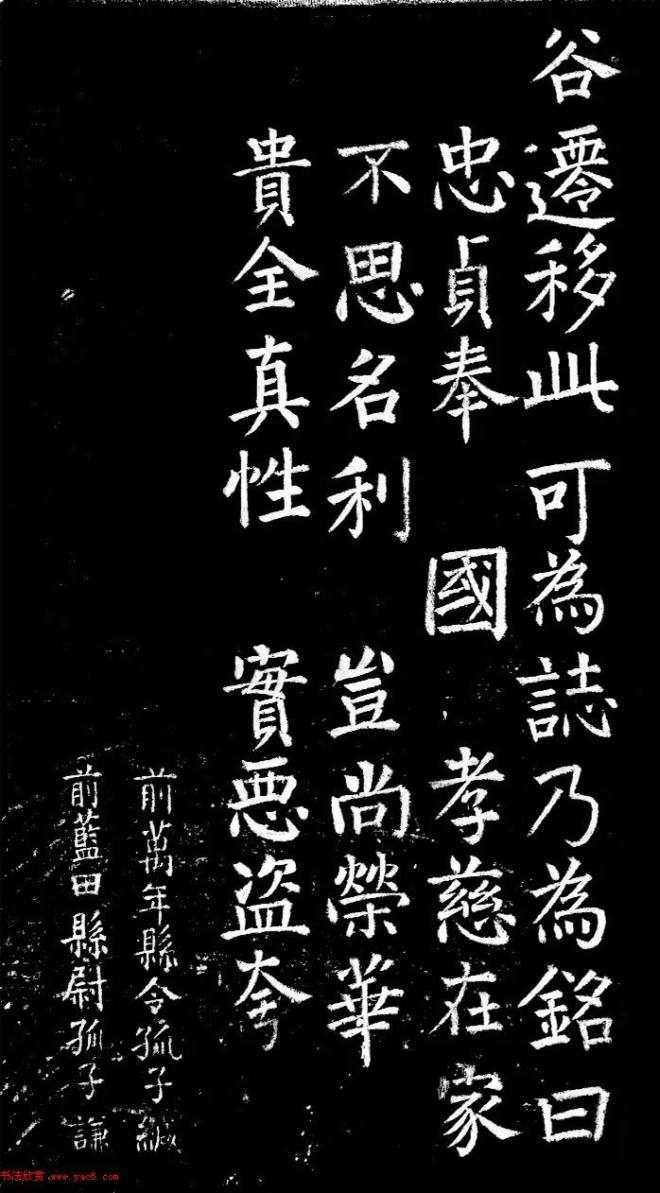 谷遷移此可為誌乃為銘曰
忠貞奉 國 孝慈在家
不思名利 豈尚榮華
貴全真性 實惡盜夸
前萬年縣令孤子緘
前藍田縣尉孤子謙
书法欣赏 www.yac8.com